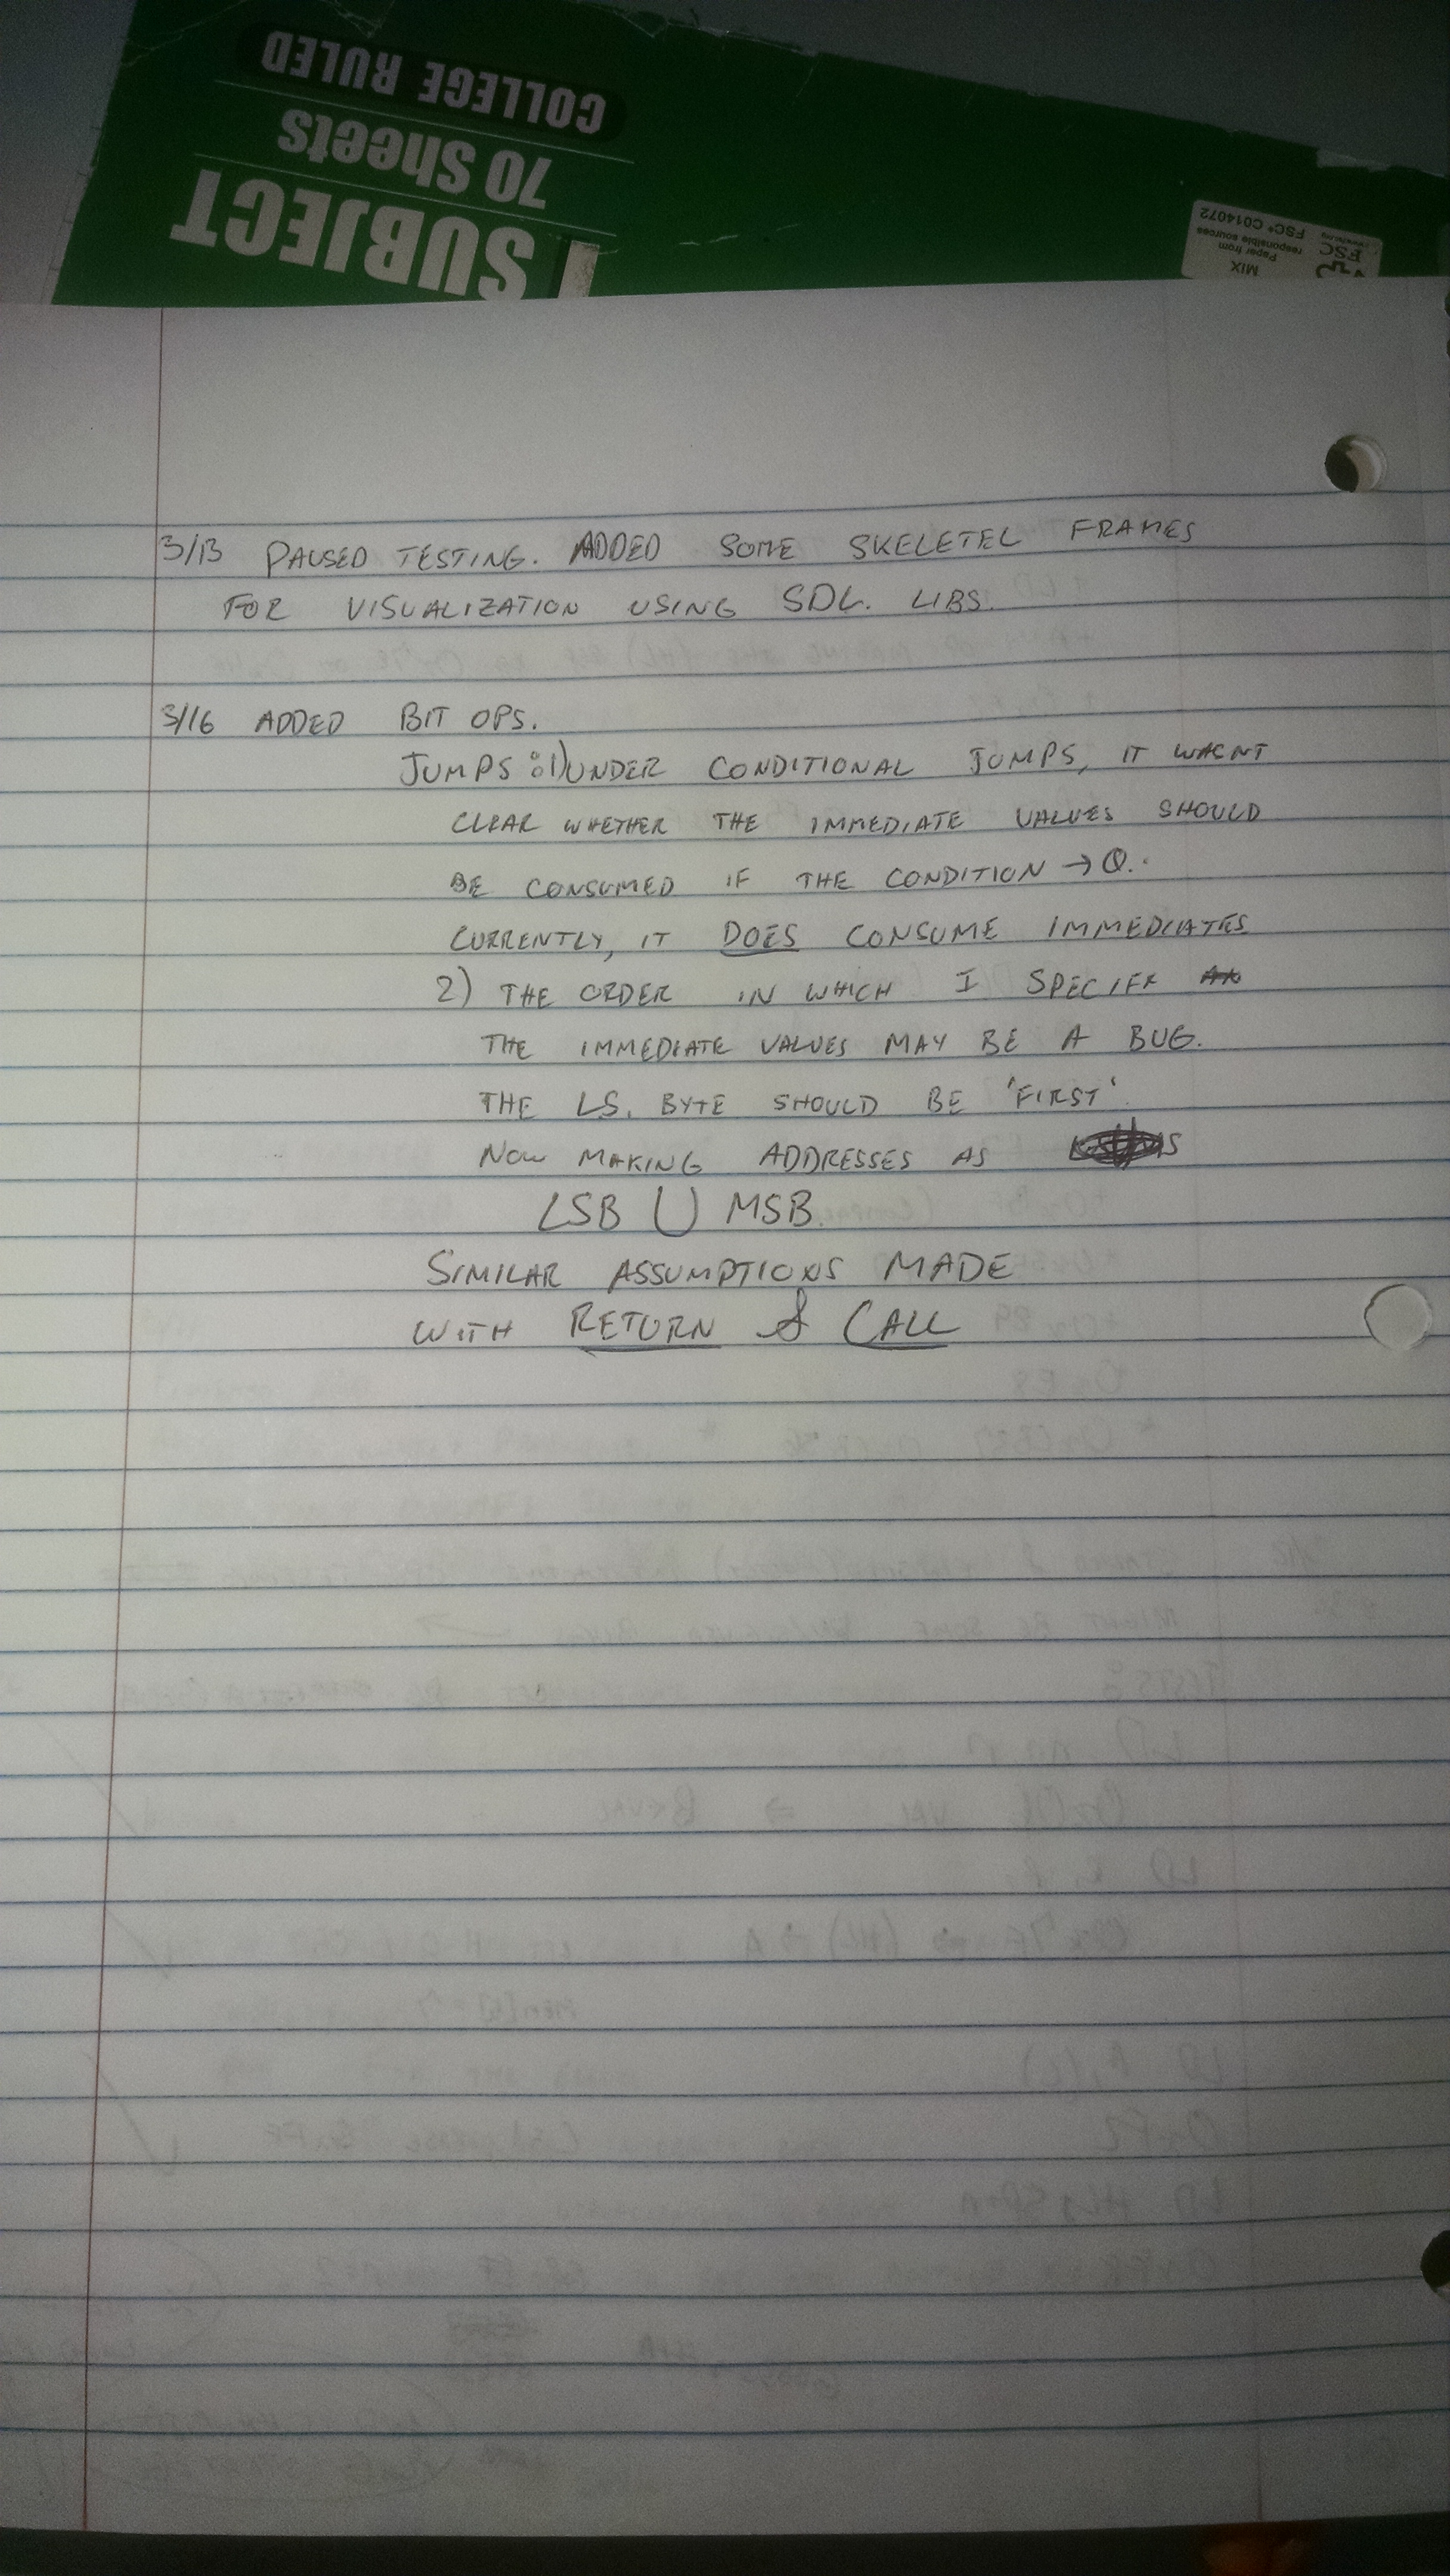 COLLEGE RULED
70 Sheets
1 SUBJECT
MIX
Paper from
responsible sources
FSC
FSC® C014072
3/13 PAUSED TESTING. ADDED SOME SKELETEL FRAMES
FOR VISUALIZATION USING SDL. LIBS.
3/16 ADDED BIT OPS.
JUMPS: 1) UNDER CONDITIONAL JUMPS, IT WASNT
CLEAR WHETHER THE IMMEDIATE VALUES SHOULD
BE CONSUMED IF THE CONDITION → 0.
CURRENTLY, IT DOES CONSUME IMMEDIATES
2) THE ORDER IN WHICH I SPECIFY
THE IMMEDIATE VALUES MAY BE A BUG.
THE LS. BYTE SHOULD BE 'FIRST'.
NOW MAKING ADDRESSES AS
LSB U MSB.
SIMILAR ASSUMPTIONS MADE
WITH RETURN & CALL